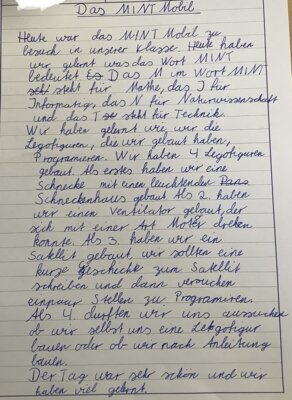 Das MINT Mobil
Heute war das MINT Mobil zu
besuch in unserer Klasse. Heute haben
wir gelernt was das Wort MINT
bedeutet Es Das M im Wort MINT
seht steht für Mathe, das I für
Informatig, das N für Naturwissenschaft
und das T se steht für Technik.
Wir haben gelernt wie wir die
Legofiguren, die wir gebaut haben,
Programieren. Wir haben 4 Legofiguren
gebaut. Als erstes haben wir eine
Schnecke mit einen leuchtenden
Schneckenhaus gebaut Als 2. haben
wir einen Ventilator gebaut, der
sich mit einer Art Moter drehen
konnte. Als 3. haben wir ein
Satellit gebaut, wir sollten eine
kurze Geschichte zum Satellit
schreiben und dann versuchen
einpaar Stellen zu Programiren.
Als 4. durften wir uns aussuchen
ob wir selbst uns eine Lekgofigur
bauen oder ob wir nach Anleitung
bauen.
Der Tag war sehr schön und wir
haben viel gelernt.